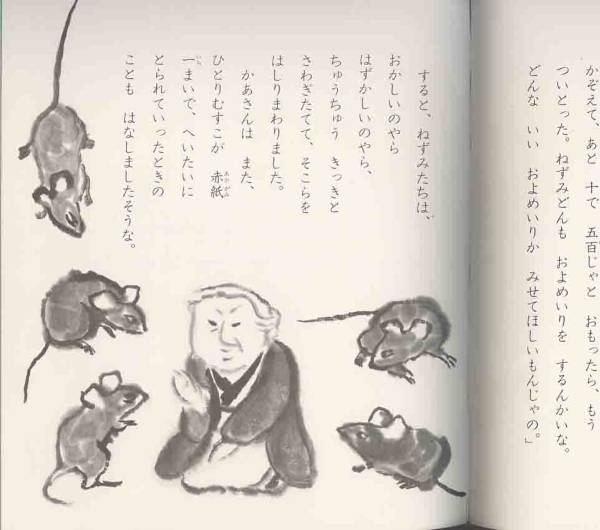 かぞえて、あと 十で 五百じゃと おもったら、もう
ついとった。ねずみどんも およめいりを するんかいな。
どんな いい およめいりか みせてほしいもんじゃの。」
すると、ねずみたちは、
おかしいのやら
はずかしいのやら、
ちゅうちゅう きっきと
さわぎたてて、そこらを
はしりまわりました。
かあさんは また、
ひとりむすこが 赤紙
一まいで、へいたいに
とられていったときの
ことも はなしましたそうな。